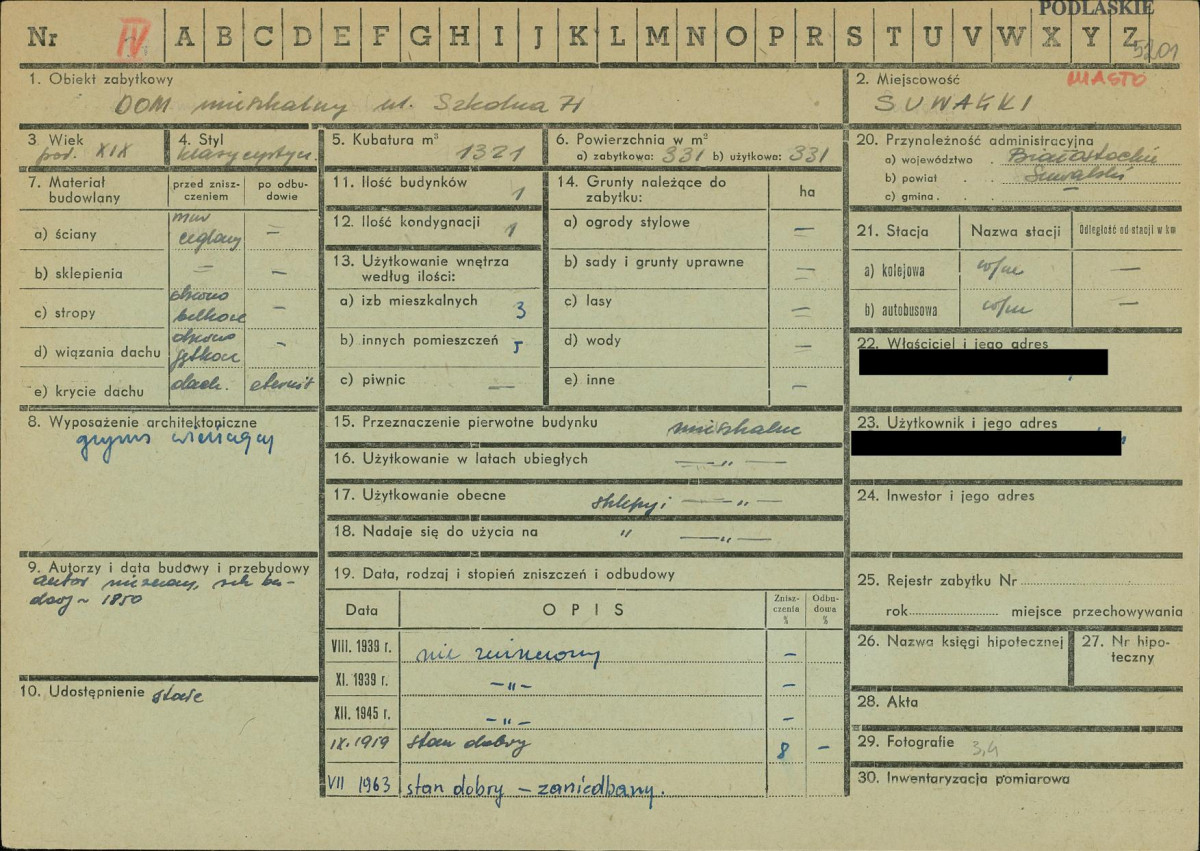 PODLASKIE
Nr IV A B C D E F G H I J K L M N O P R S T U V W X Y Z 5201
1. Obiekt zabytkowy
DOM mieszkalny ul. Szkolna 7
2. Miejscowość MIASTO
SUWAŁKI
3. Wiek
poł. XIX
4. Styl
klasycystycz.
5. Kubatura m³
1321
6. Powierzchnia w m²
a) zabytkowa: 331 b) użytkowa: 331
20. Przynależność administracyjna
a) województwo . Białostockie
b) powiat . . Suwalski
c) gmina . . . —
7. Materiał budowlany
przed zniszczeniem
po odbudowie
a) ściany mur ceglany —
b) sklepienia — —
c) stropy drewno belkowe —
d) wiązania dachu drewno jętkowe —
e) krycie dachu dach. eternit
11. Ilość budynków 1
12. Ilość kondygnacji 1
13. Użytkowanie wnętrza
według ilości:
a) izb mieszkalnych 3
b) innych pomieszczeń 5
c) piwnic —
14. Grunty należące do
zabytku: ha
a) ogrody stylowe —
b) sady i grunty uprawne —
c) lasy —
d) wody —
e) inne —
21. Stacja Nazwa stacji Odległość od stacji w km
a) kolejowa w/m —
b) autobusowa w/m —
22. Właściciel i jego adres
23. Użytkownik i jego adres
24. Inwestor i jego adres
8. Wyposażenie architektoniczne
gzyms wieńczący
15. Przeznaczenie pierwotne budynku mieszkalne
16. Użytkowanie w latach ubiegłych — „ —
17. Użytkowanie obecne sklepy i — „ —
18. Nadaje się do użycia na „ — „ —
9. Autorzy i data budowy i przebudowy
autor nieznany, rok bu-
dowy ~ 1850
10. Udostępnienie stałe
19. Data, rodzaj i stopień zniszczeń i odbudowy
Data OPIS Zniszczenia % Odbudowa %
VIII. 1939 r. nie zniszczony —
XI. 1939 r. — „ — —
XII. 1945 r. — „ — —
IX. 1959 stan dobry 8 —
VII 1963 stan dobry – zaniedbany.
25. Rejestr zabytku Nr
rok miejsce przechowywania
26. Nazwa księgi hipotecznej
27. Nr hipo-
teczny
28. Akta
29. Fotografie 3,4
30. Inwentaryzacja pomiarowa